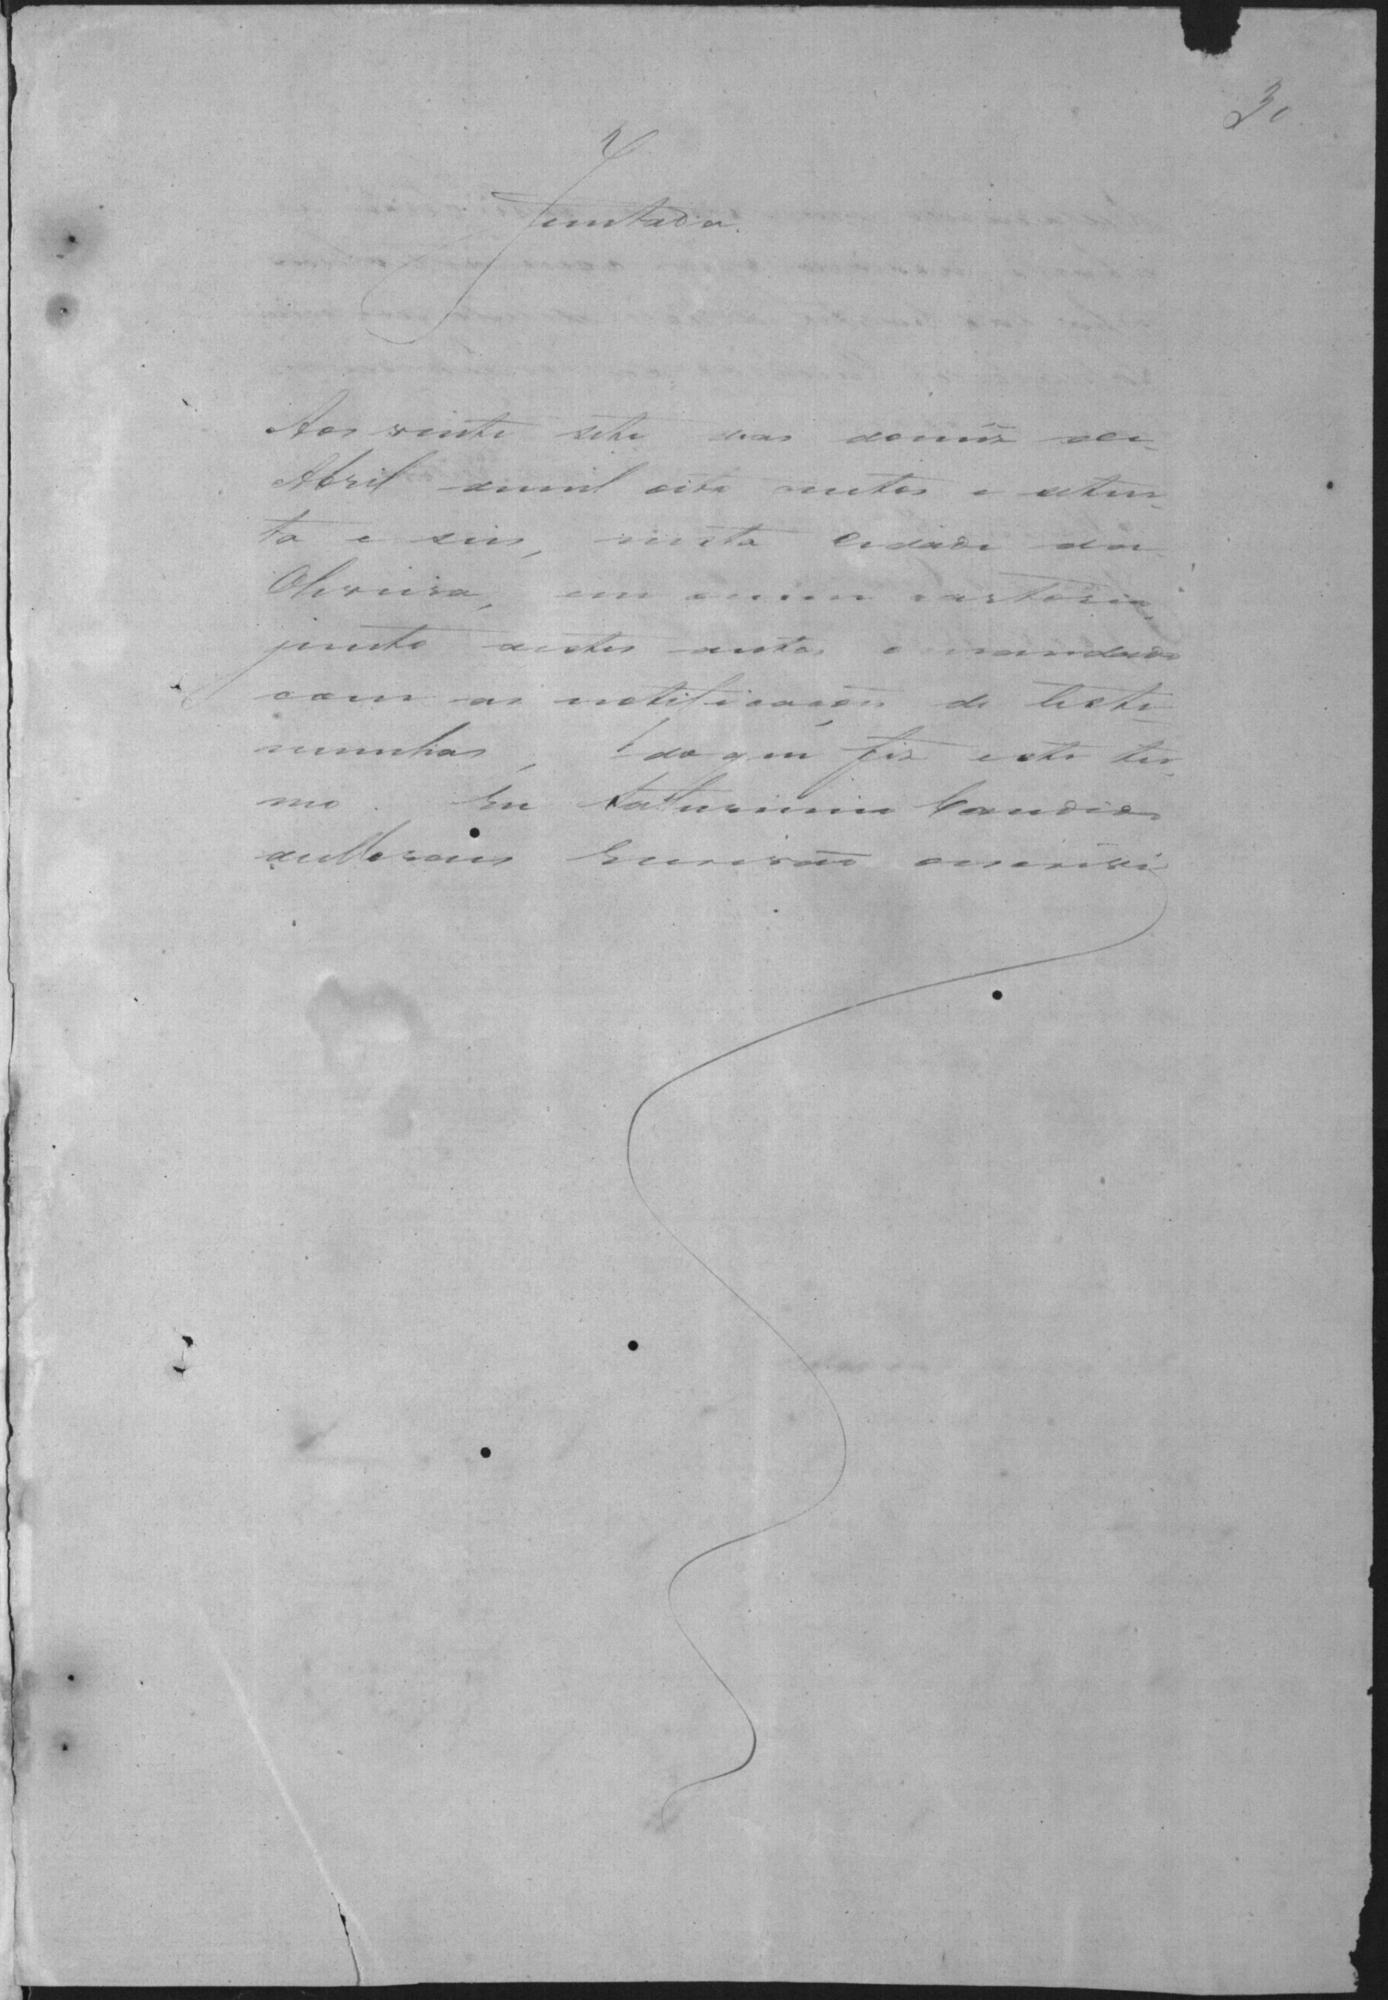 30
Juntada.
Aos vinte sete dias domês de
Abril demil oito centos e seten-
ta e seis, nesta Cidade da
Oliveira, em omeu cartorio,
junto aestes autos omandado
com as notificações de teste-
munhas, doque fiz este ter-
mo. Eu Saturnino Candido
deMoraes Escrivão oescrevi